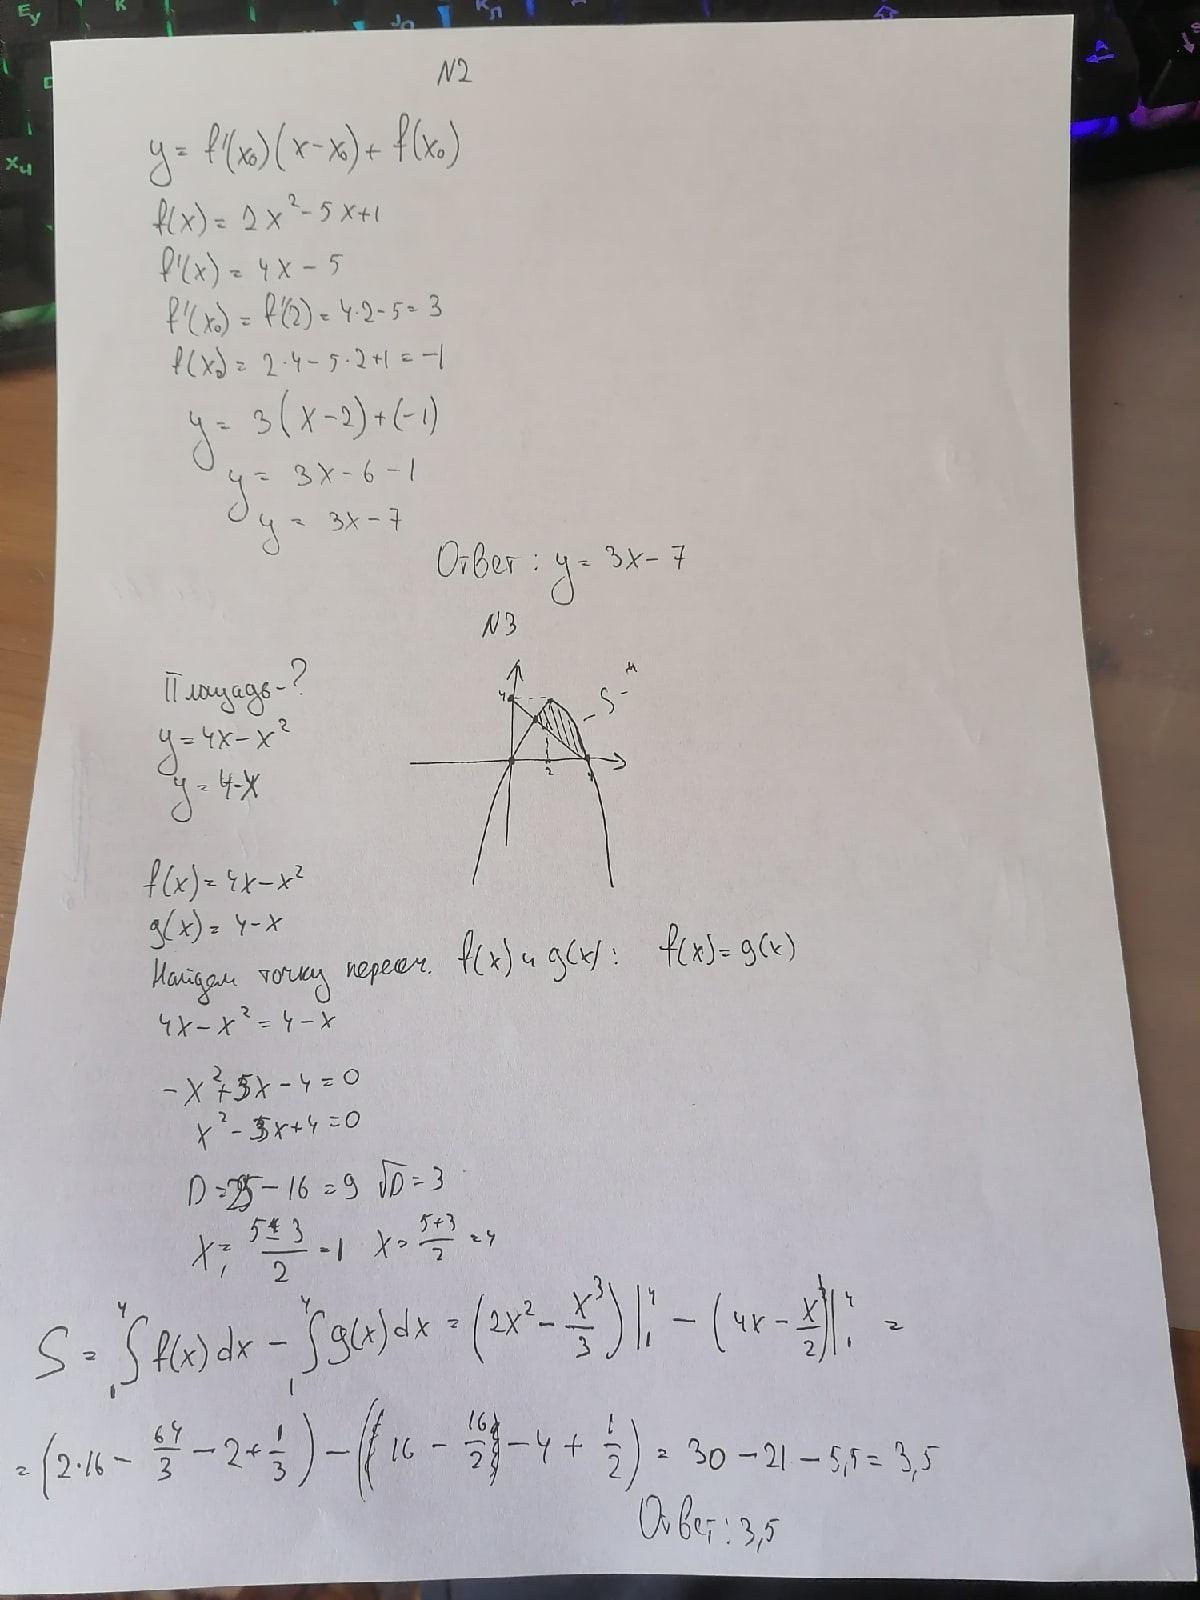 N2
y = f'(x₀)(x-x₀) + f(x₀)
f(x) = 2x² - 5x+1
f'(x) = 4x - 5
f'(x₀) = f'(2) = 4·2-5 = 3
f(x₀) = 2·4 - 5·2+1 = -1
y = 3(x-2)+(-1)
y = 3x - 6 - 1
y = 3x - 7
Ответ: y = 3x - 7
N3
Площадь-?
y = 4x - x²
y = 4-x
4
S -
2
f(x) = 4x - x²
g(x) = 4-x
Найдем точку пересеч. f(x) и g(x): f(x) = g(x)
4x - x² = 4 - x
-x² + 5x - 4 = 0
x² - 5x + 4 = 0
D = 25 - 16 = 9 √D = 3
x₁ = (5-3)/2 = 1 x = (5+3)/2 = 4
S = ₁∫⁴ f(x)dx - ₁∫⁴ g(x)dx = (2x² - x³/3)|₁⁴ - (4x - x²/2)|₁⁴ =
= (2·16 - 64/3 - 2 + 1/3) - (16 - 16/2 - 4 + 1/2) = 30 - 21 - 5,5 = 3,5
Ответ: 3,5